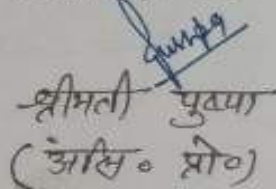 श्रीमती पुष्पा
(असि॰ प्रो॰)